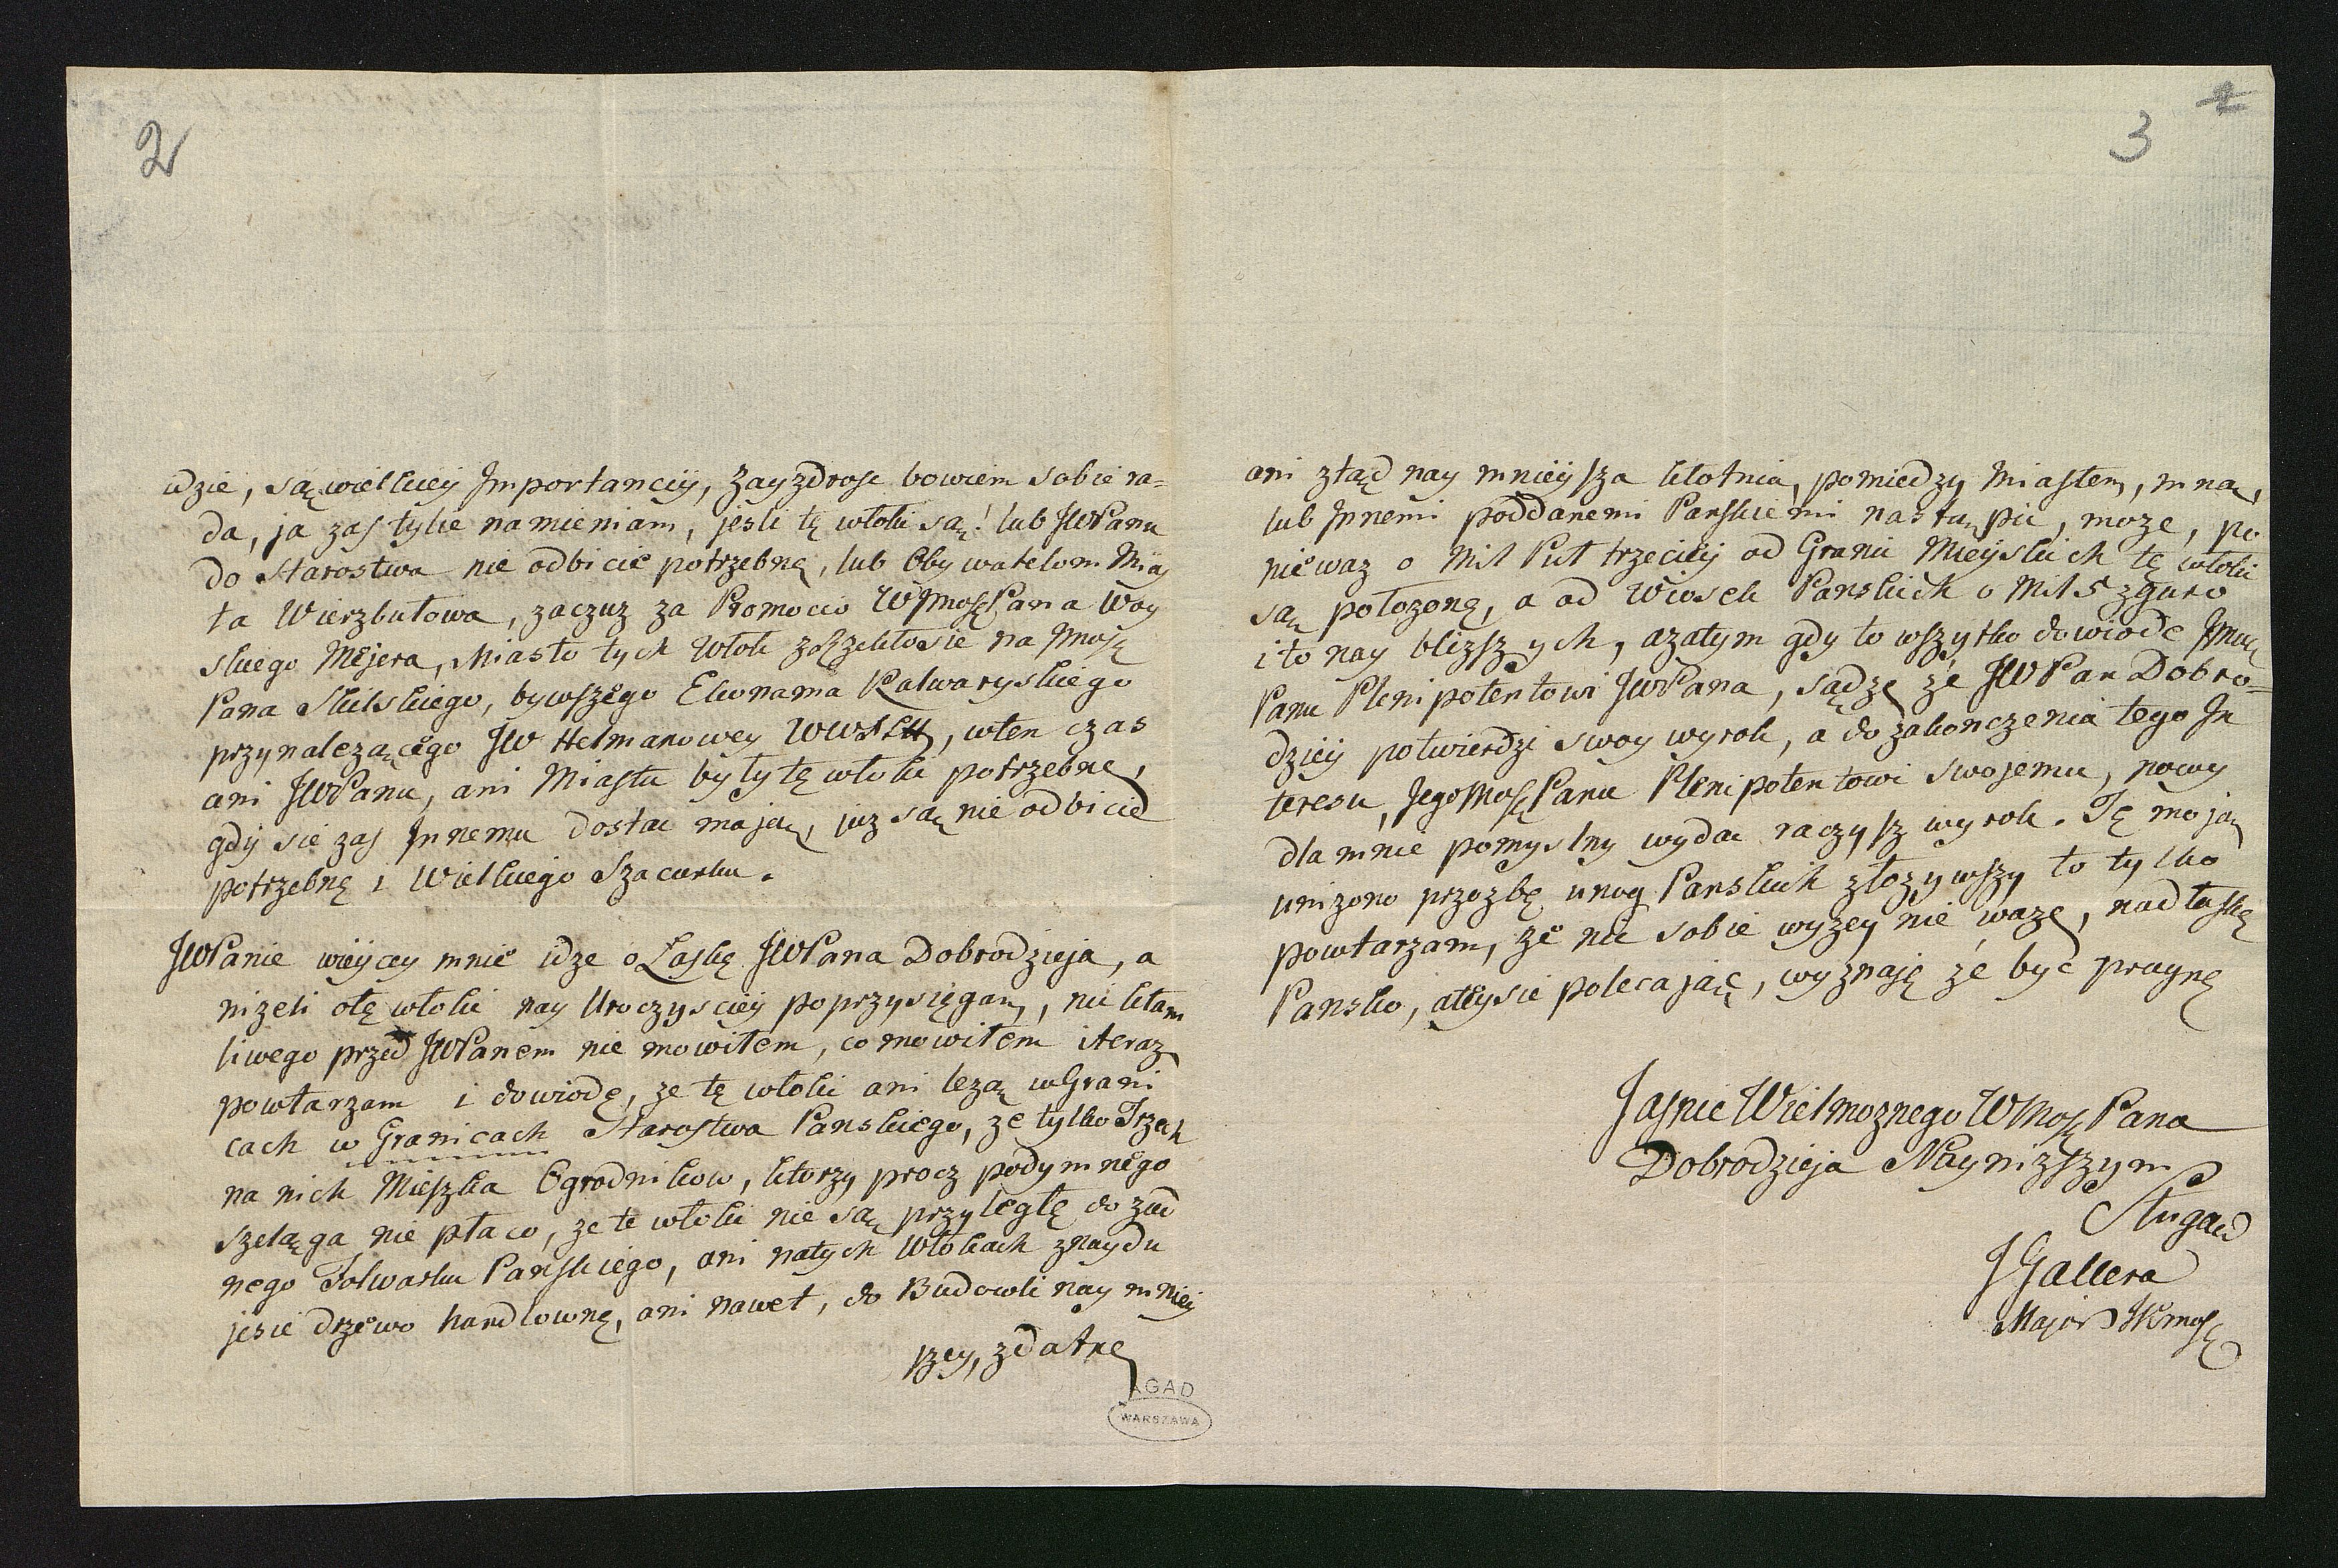 2
idzie, są wielkiey Importancÿi, Zayzdrosc bowiem sobie ra=
da, ja zas tylie namieniam, jesli tę włoki są! lub JWPanu
do Starostwa nie odbicie potrzebnę, lub Obywatelom Mias
ta Wierzbułowa, zaczuz za Promocio WJmośćPana Woy
skiego Mejera, Miasto tych Włok zrzekłosie na Jmość
Pana Skilskiego, bywszego Ekonama Kalwaryskiego
przynalezącego JW Hetmanowey WWXLtt, wten czas
ani JWPanu, ani Miastu były tę włoki potrzebnę,
gdÿ sie zas Innemu dostac mają, juz są nie odbicie
potrzebnę i Wielkiego Szacunku.
JWPanie więycey mnie idze o Łaskę JWPana Dobrodzieja, a
nizeli otę włoki nay Uroczysciey poprzysięgam, nic kłam
liwego przed JWPanem nie mowiłem, co mowiłem iteraz
powtarzam i dowiodę, ze tę włoki ani lezą wGrani
cach w Granicach Starostwa Panskiego, ze tylko Trzech
na nich Mieszka Ogrodnikow, ktorzy procz podymnego
szeląga nie płaco, ze te włoki nie są przyległę do zad
nego Folwarku Panskiego, ani natych Włokach znaydu
jesie drzewo handlownę, ani nawet, do Budowli nay mniey
szey, zdatne
AGAD
WARSZAWA
2
3
ani ztąd nay mnieysza kłotnia, pomiedzy Miastem, mną,
lub Innemi poddanemi Panskiemi nastąpic, moze, po
niewaz o Mil Puł trzeciey od Granic Mieyskich tę włoki
są połozonę, a od Wiosek Panskich o Mil 5 zguro
i to nay blizszych, azatym gdy to wszytko dowiodę Jmość
Panu Plenipotentowi JWPana, sądzę ze JWPan Dobro=
dziey potwierdzi swoy wyrok, a do zakonczenia tego In
teresu, JegomośćPanu Plenipotentowi swojemu, nowy
dla mnie pomyslny wydac raczysz wyrok. Tę moją
unizono prozbę unog Panskich złozywszy to tylko
powtarzam, ze nic sobie wyzey nie wazę, nad łaskę
Pansko, ateysie polecając, wyznaję ze być pragnę
Jasnie Wielmoznego WMość Pana
Dobrodzieja Naynizszym
Sługad
J Gallera
Major JKmość